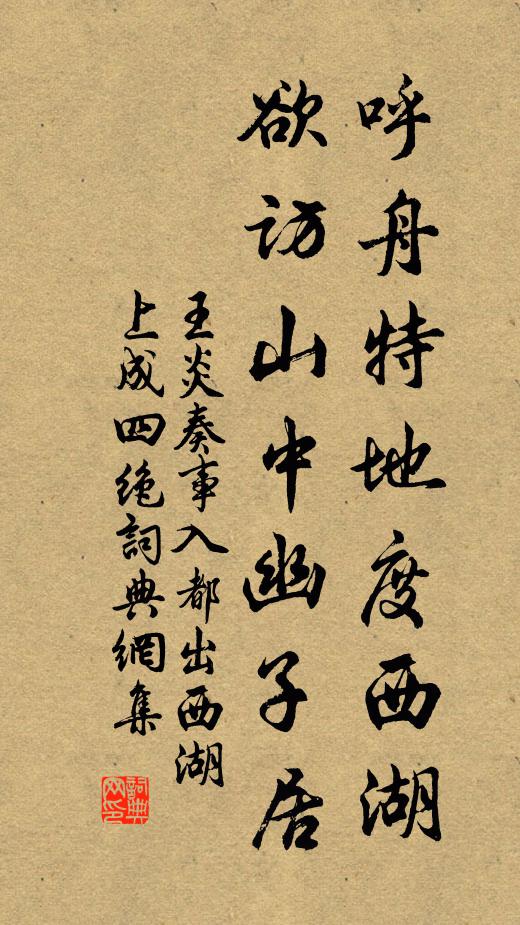 呼舟特地度西湖
欲訪山中幽子居
王炎奏事入都出西湖
上成四絶詞典網集
詞典網印